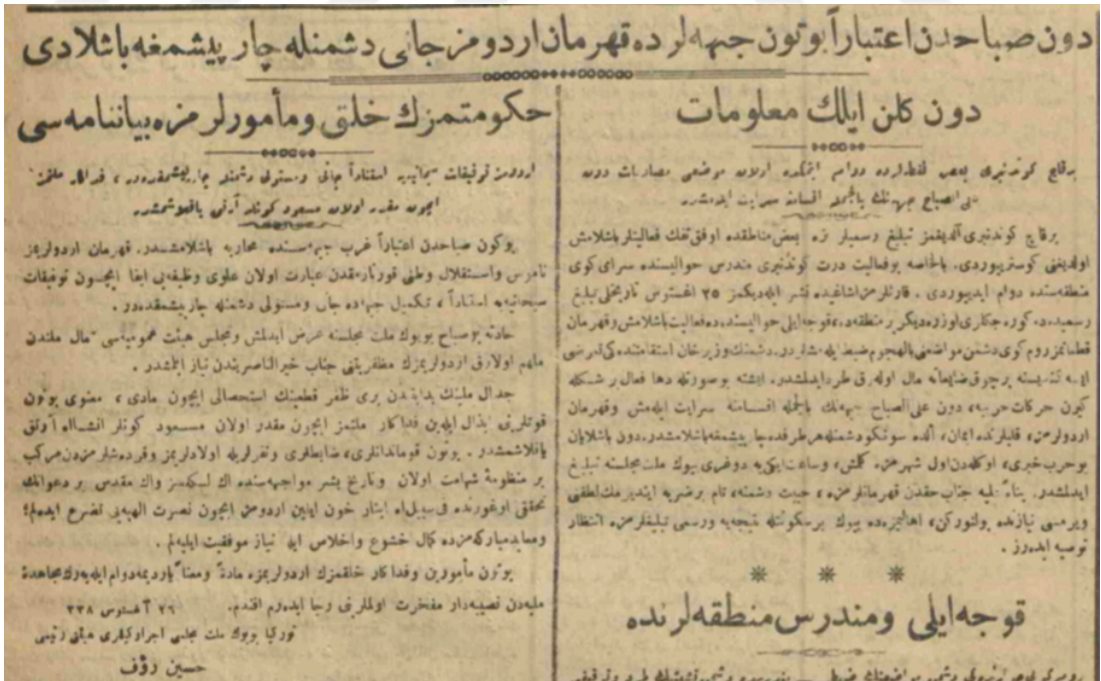 دون صباحدن اعتباراً بوتون جبهه‌لرده قهرمان اردومز جانی دشمنله چارپیشمغه باشلادی
دون كلن ایلك معلومات
برقاچ كوندنبری بعض نقطه‌لرده دوام ایتمكده اولان موضعی مصادمات دون
علی الصباح جبهه‌نك بالجمله اقسامنه سرایت ایده‌شدر
برقاچ كوندنبری آلدیغمز تبلیغ رسمیلرده بعض مناطقده اوفق تفك فعالیتلر باشلامش
اولدیغی كوستریوردی. بالخاصه بوفعالیت درت كوندنبری مندرس حوالیسنده سرای كوی
منطقه‌سنده دوام ایدییوردی. قارئلرمز اشاغیده نشر ایله‌دیكمز ٢٥ اغستوس تاریخلی تبلیغ
رسمیده‌ده كوره‌جكلری اوزره دیكر بر منطقه‌ده، قوجه‌ایلی حوالیسنده ده فعالیت باشلامش وقهرمان
قطعاتمز روم كوی دشمن مواضعنی بالهجوم ضبط ایله‌مشلردر. دشمنك وزیرخان استقامتنده كی تعرضی
ایسه كندیسنه برچوق ضایعاته مال اوله‌رق طرد ایدلمشدر. ایشته بوصورتله دها فعال بر شكله
كیرن حركات حربیه، دون علی الصباح جبهه‌نك بالجمله اقسامنه سرایت ایله‌مش وقهرمان
اردولرمز، قلبلرنده ایمان، الده سونكو دشمنله هر طرفده چارپیشمغه باشلامشدر. دون باشلایان
بوحرب خبری، اوكله‌دن اول شهرمزه كلمش، وساعت ایكی یه دوغری بیوك ملت مجلسنه تبلیغ
ایدلمشدر. بناءً علیه جناب حقدن قهرمانلرمزه، خبیث دشمنه، تام بر ضربه ایندیرمك لطفنی
ویرمسی نیازنده بولنوركن، اهالیمزه‌ده بیوك بر سكونتله نتیجه‌یه ورسمی تبلیغلرمزه انتظار
توصیه ایده‌رز.
✳ ✳ ✳
قوجه‌ایلی ومندرس منطقه‌لرنده
حكومتمزك خلق ومأمورلرمزه بیاننامه‌سی
اردومز توفیقات سبحانیه‌یه استناداً جانی ومستولی دشمنله چارپیشمقده‌در، فداكار ملتمز
ایچون مقدر اولان مسعود كونلر آرتق یاقلاشمشدر
بوكون صباحدن اعتباراً غرب جبهه‌سنده محاربه باشلامشدر. قهرمان اردولریمز
ناموس واستقلال وطنی قورتارمقدن عبارت اولان علوی وظیفه‌یی ایفا ایچون توفیقات
سبحانیه‌یه استناداً، تكمیل جبهه‌ده جانی ومستولی دشمنله چارپیشمقده‌در.
حادثه بوصباح بویوك ملت مجلسنه عرض ایدلمش ومجلس هیئت عمومیه‌سی آمال ملتدن
ملهم اولارق اردولریمزك مظفریتنی جناب خیرالناصریندن نیاز ایتمشدر.
جدال ملینك بدایتدن بری ظفر قطعینك استحصالی ایچون مادی، معنوی بوتون
قوتلرینی بذل ایله‌ین فداكار ملتمز ایچون مقدر اولان مسعود كونلر انشاالله آرتق
یاقلاشمشدر. بوتون قوماندانلری، ضابطلری ونفرلریله اولادلریمز وقرده‌شلرمزدن مركب
بر منظومهٔ شهامت اولان وتاریخ بشر مواجهه‌سنده اك لكه‌سز واك مقدس بر دعوانك
تحققی اوغورنده فی سبیل‌الله ایثار خون ایله‌ین اردومز ایچون نصرت الهیه‌یی تضرع ایده‌لم!
ومعابد مباركه‌مزده كمال خشوع واخلاص ایله نیاز موفقیت ایلیه‌لم.
بوتون مأمورین وفداكار خلقمزك اردولریمزه مادةً ومعناً یاردیمه دوام ایله‌یه‌رك مجاهدهٔ
ملیه‌دن نصیبه‌دار مفخرت اولملرینی رجا ایده‌رم افندم. ٢٦ آغستوس ٣٣٨
توركیا بویوك ملت مجلسی اجرا وكیللری هیئتی رئیسی
حسین رؤف